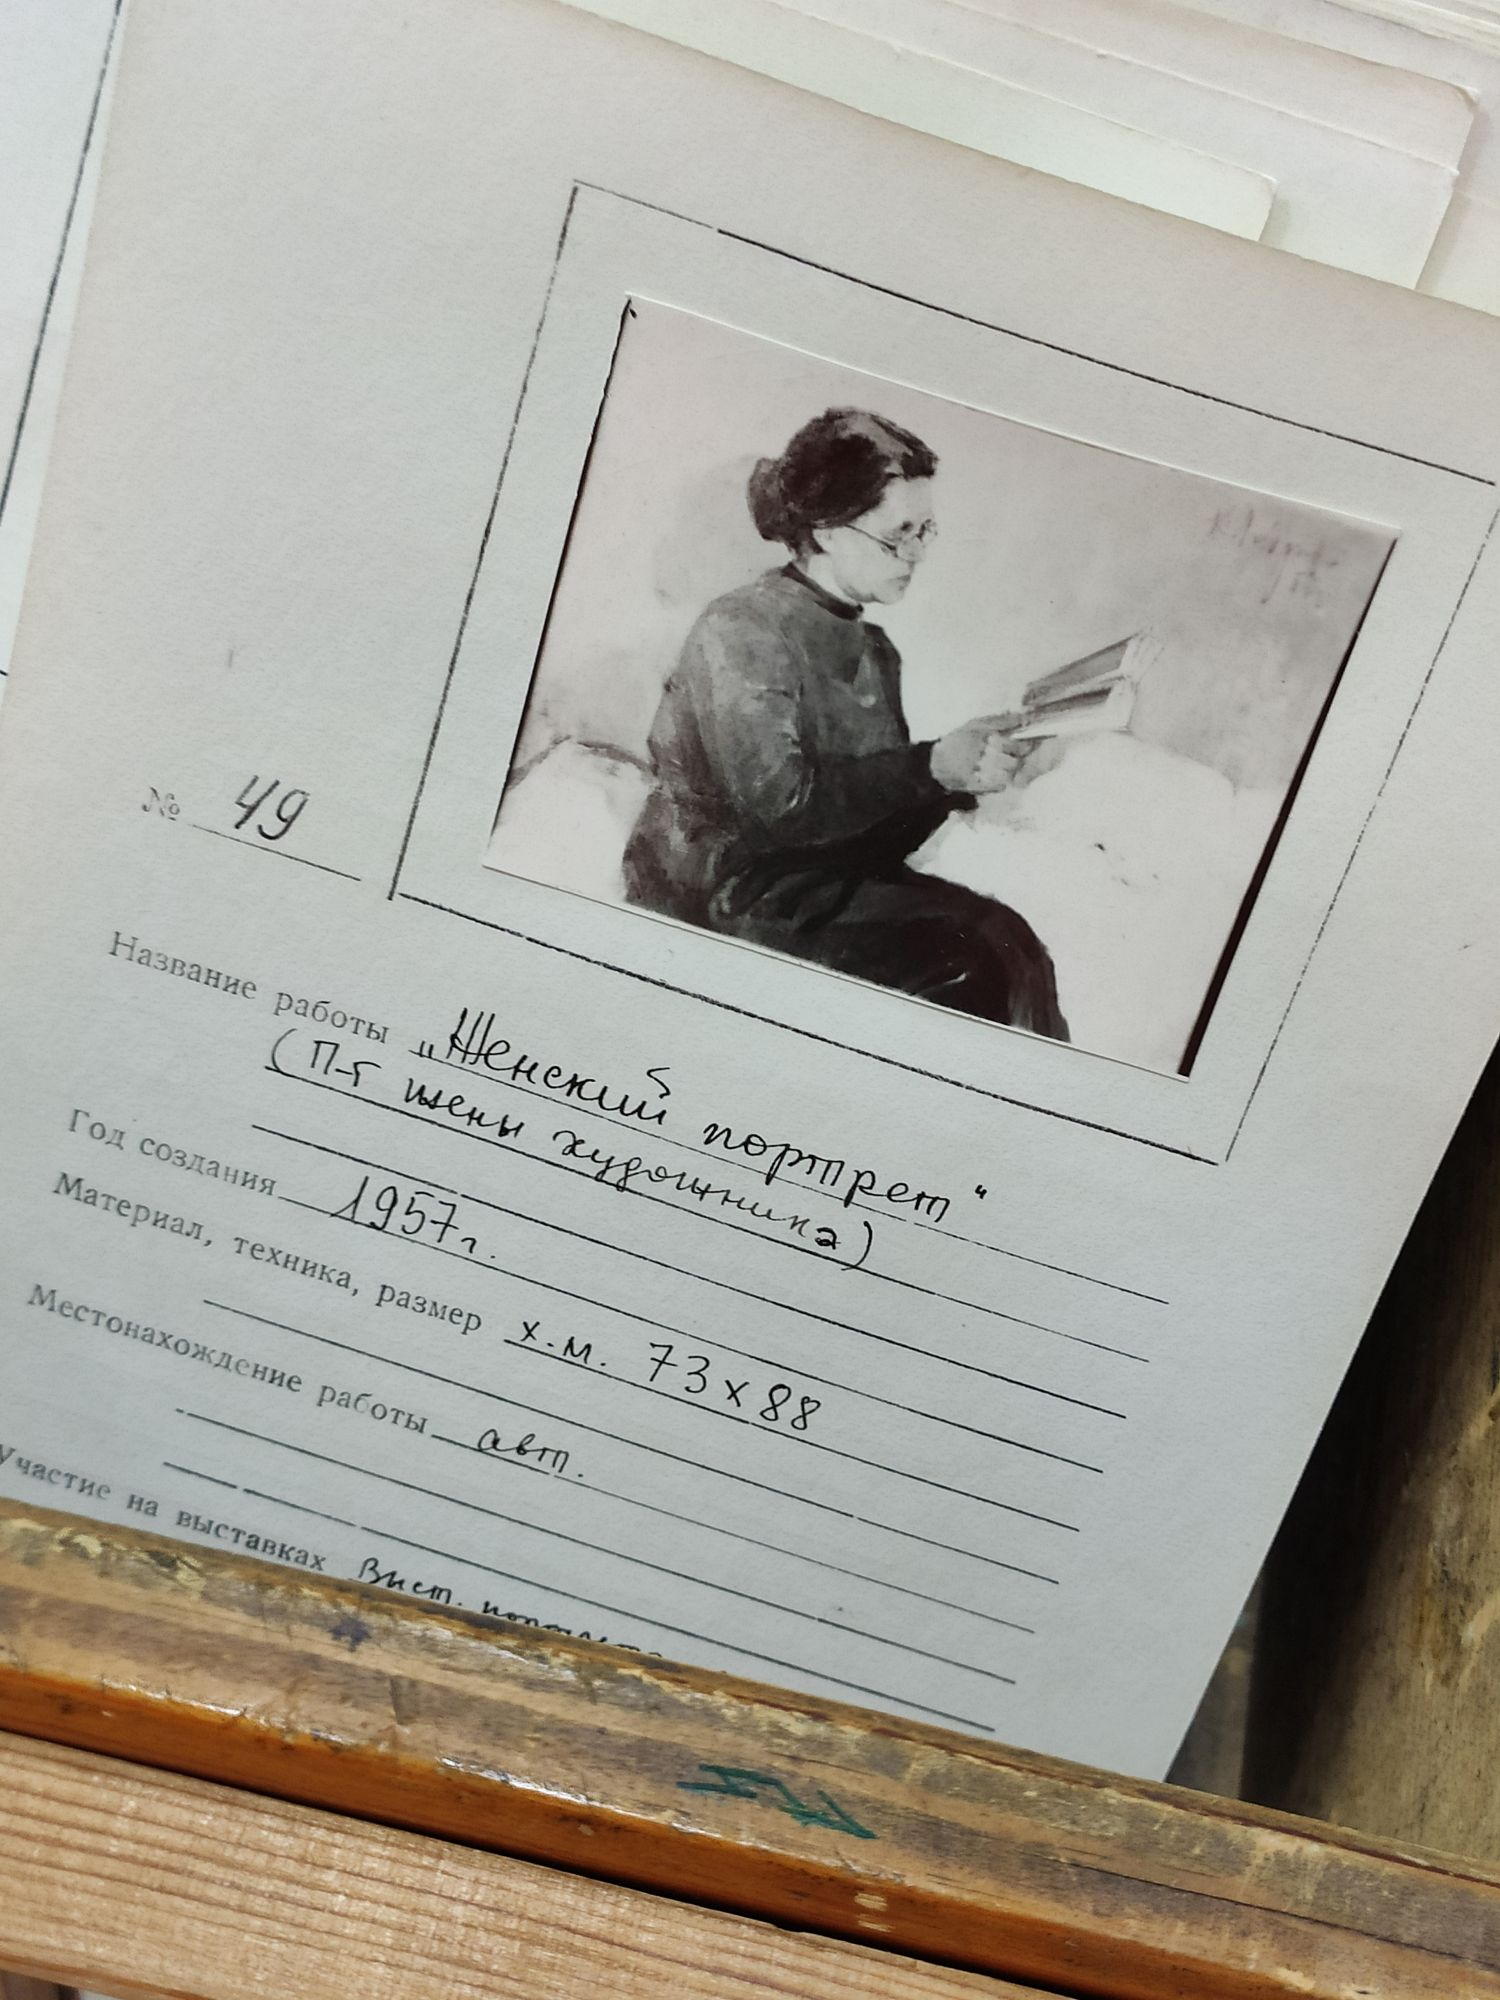 № 49
Название работы „Женский портрет“
(П-т жены художника)
Год создания 1957 г.
Материал, техника, размер х.м. 73 х 88
Местонахождение работы авт.
Участие на выставках Выст.